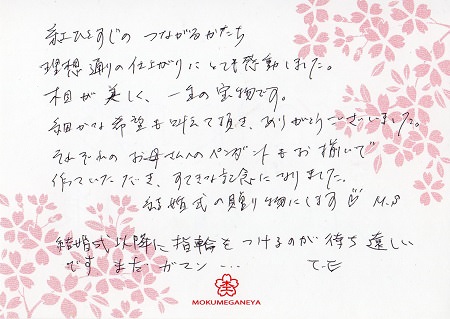 紅ひとすじの つながるかたち
理想通りの仕上がりにとても感動しました。
木目が美しく、一生の宝物です。
細かな希望も叶えて頂き、ありがとうございました。
それぞれのお母さんへのペンダントもお揃いで
作っていただき、すてきな記念になりました。
結婚式の贈り物にします♡ M.S
結婚式以降に指輪をつけるのが待ち遠しい
です まだガマン…
T.E
MOKUMEGANEYA